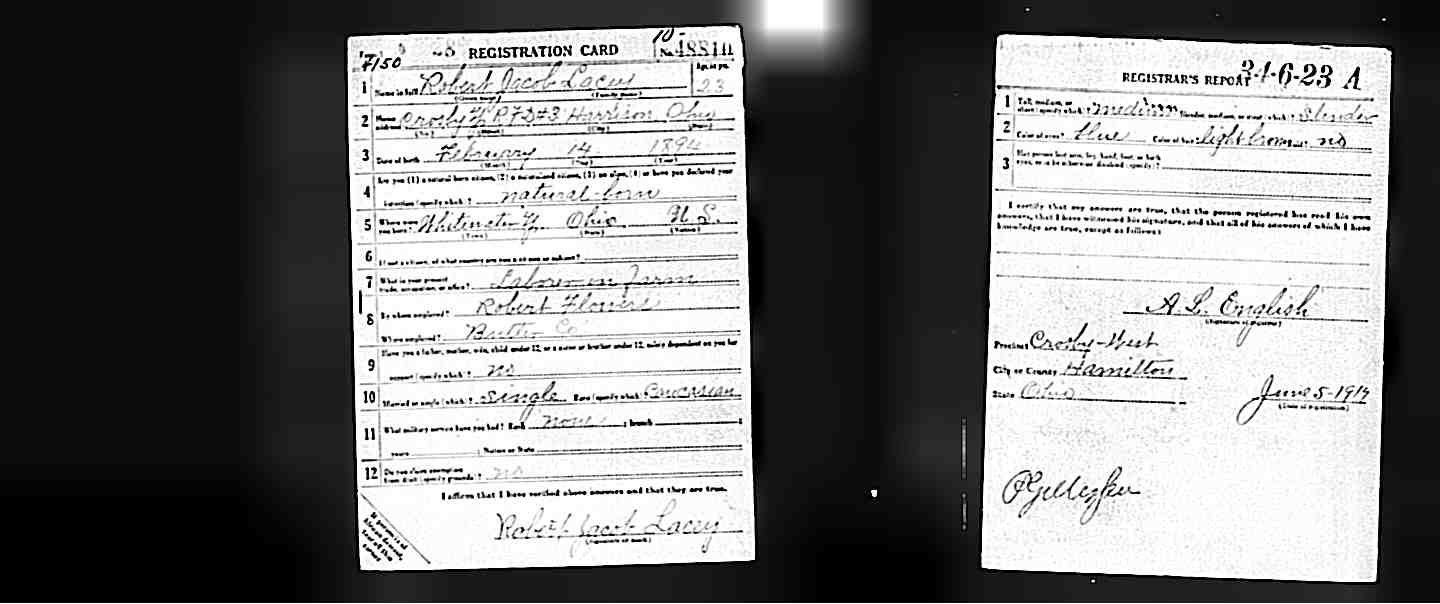 7150 28 REGISTRATION CARD No.
1 Name in full Robert Jacob Lacey Age, in yrs. 23
(Given name) (Family name)
2 Home address Crosby R F D #3 Harrison Ohio
(No.) (Street) (City) (State)
3 Date of birth February 14 1894
(Month) (Day) (Year)
4 Are you (1) a natural born citizen, (2) a naturalized citizen, (3) an alien, (4) or have you declared your
intention (specify which)? natural-born
5 Where were you born? Ohio U.S.
(Town) (State) (Nation)
6 If not a citizen, of what country are you a citizen or subject?
7 What is your present trade, occupation, or office? Laborer on Farm
8 By whom employed? Robert Flowers
Where employed? Butler Co
9 Have you a father, mother, wife, child under 12, or a sister or brother under 12, solely dependent on you for
support (specify which)? no
10 Married or single (which)? Single Race (specify which)? Caucasian
11 What military service have you had? Rank none ; branch ;
years ; Nation or State
12 Do you claim exemption from draft (specify grounds)? no
I affirm that I have verified above answers and that they are true.
Robert Jacob Lacey
(Signature or mark)
34-6-23 A
REGISTRAR'S REPORT
1 Tall, medium, or short (specify which)? medium Slender, medium, or stout (which)? Slender
2 Color of eyes? blue Color of hair? light brown Bald? no
3 Has person lost arm, leg, hand, foot, or both
eyes, or is he otherwise disabled (specify)?
I certify that my answers are true, that the person registered has read his own
answers, that I have witnessed his signature, and that all of his answers of which I have
knowledge are true, except as follows:
A. L. English
(Signature of registrar)
Precinct Crosby-West
City or County Hamilton
State Ohio
June 5-1917
(Date of registration)